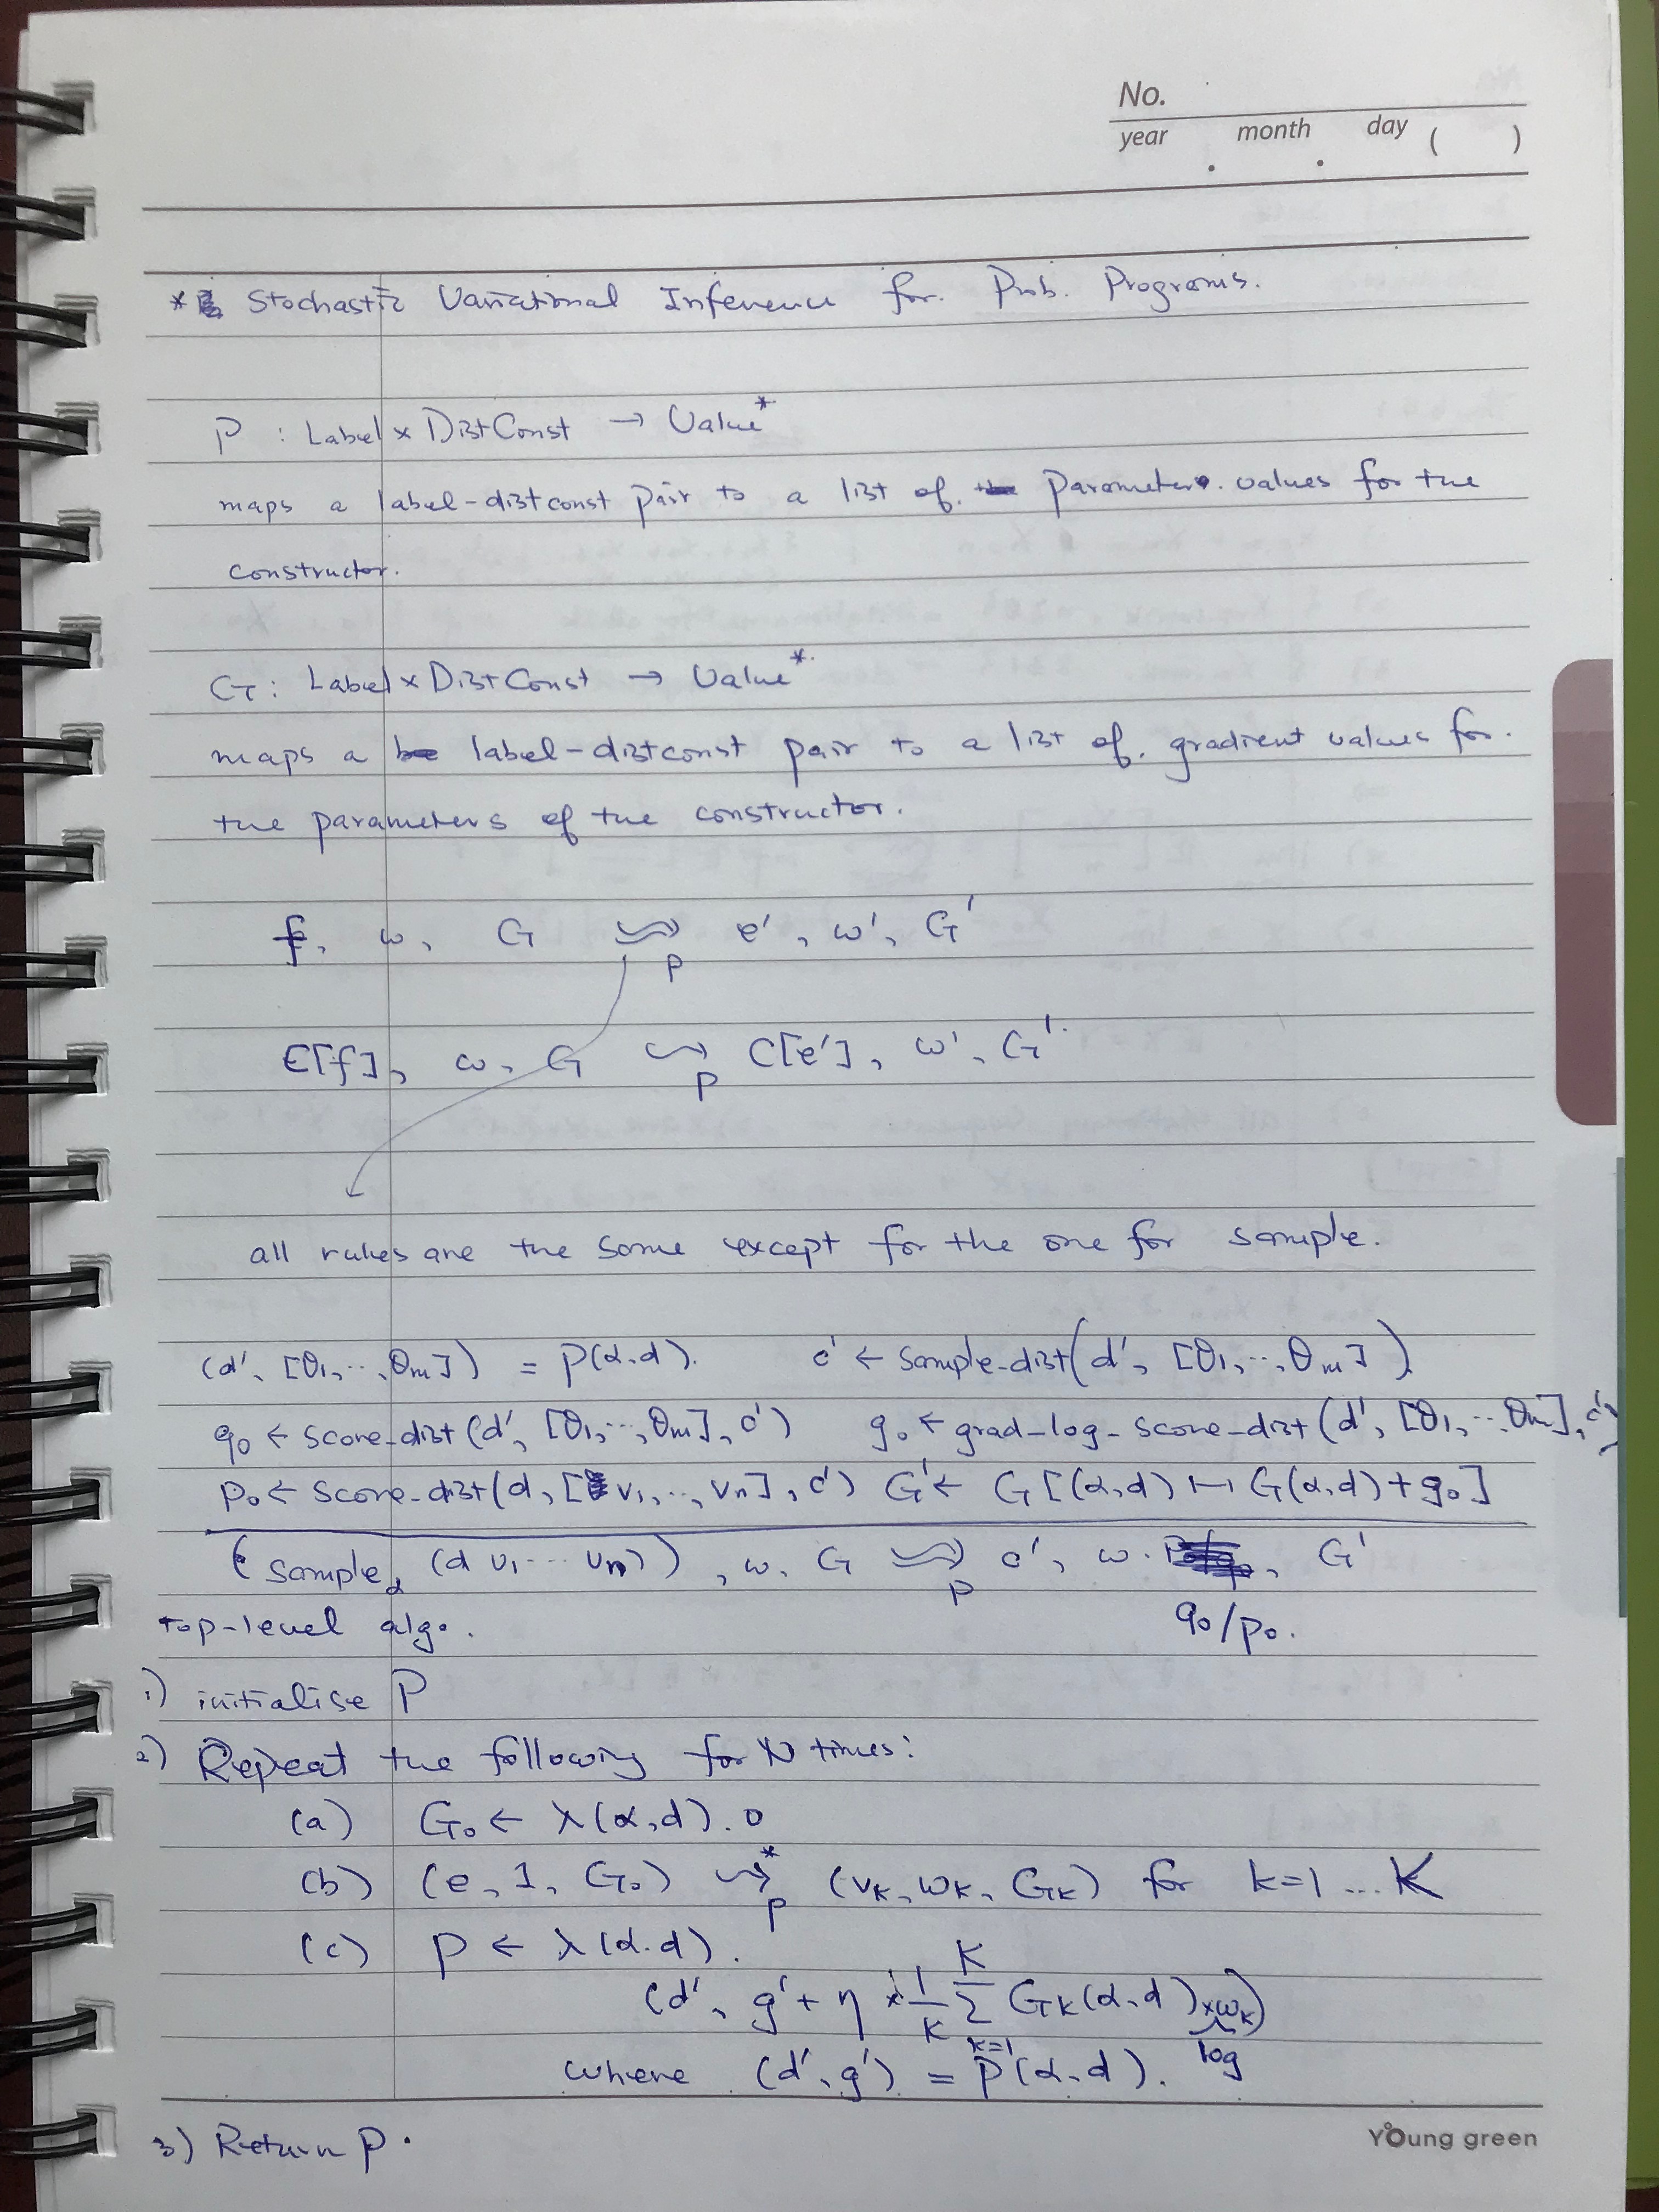 No.
year . month . day ( )
* Stochastic Variational Inference for Prob. Programs.
P : Label × DistConst → Value*
maps a label-distconst pair to a list of parameter values for the
constructor.
G : Label × DistConst → Value*
maps a label-distconst pair to a list of gradient values for
the parameters of the constructor.
f, ω, G ⇝_P e', ω', G'
C[f], ω, G ↝_P C[e'], ω', G'
all rules are the same except for the one for sample.
(d', [θ1, ..., θm]) = P(α, d). c' ← sample-dist(d', [θ1, ..., θm])
q0 ← score-dist(d', [θ1, ..., θm], c') g0 ← grad-log-score-dist(d', [θ1, ..., θm], c')
p0 ← score-dist(d, [v1, ..., vn], c') G' ← G[(α, d) ↦ G(α, d) + g0]
(sample_α (d v1 ... vn)), ω, G ⇝_P c', ω · , G'
top-level algo. q0/p0.
1) initialise P
2) Repeat the following for N times:
(a) G0 ← λ(α, d). 0
(b) (e, 1, G0) ↝*_P (vk, ωk, Gk) for k=1 ... K
(c) P ← λ(α, d).
(d', g' + η × 1/K Σ_{k=1}^{K} Gk(α, d) × ωk)
log
where (d', g') = P(α, d).
3) Return P.
Young green